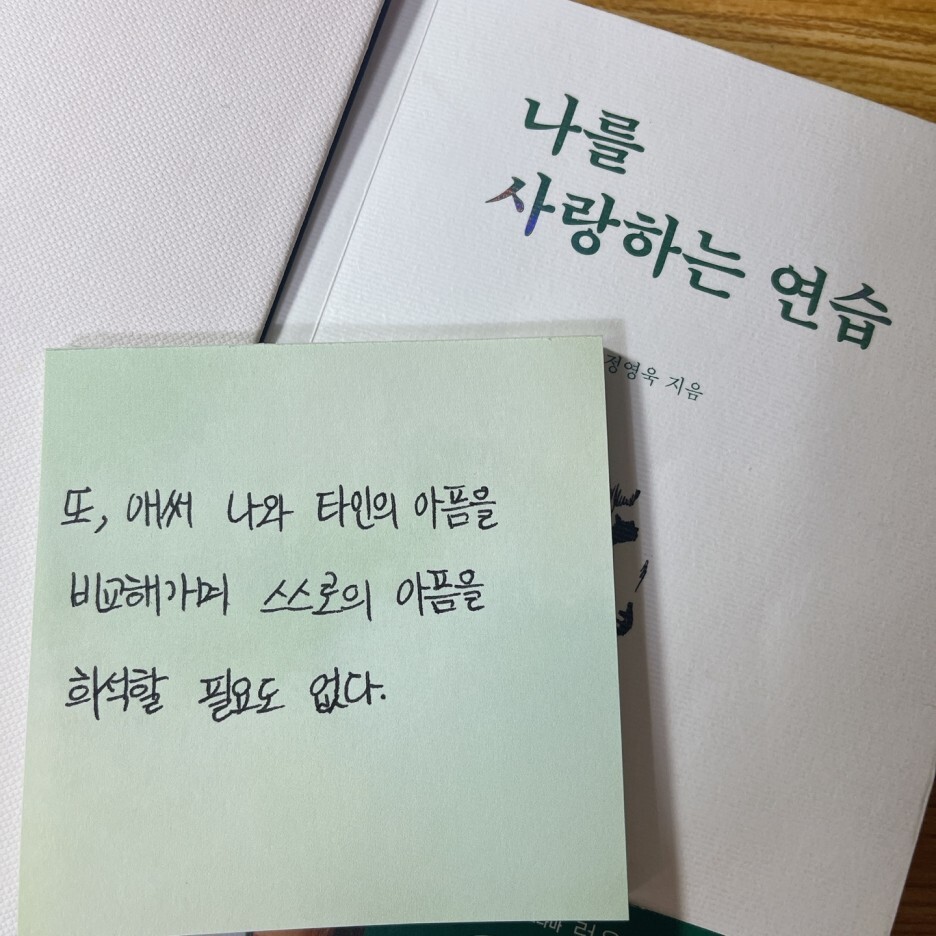 나를
사랑하는 연습
정영욱 지음
또, 애써 나와 타인의 아픔을
비교해가며 스스로의 아픔을
희석할 필요도 없다.